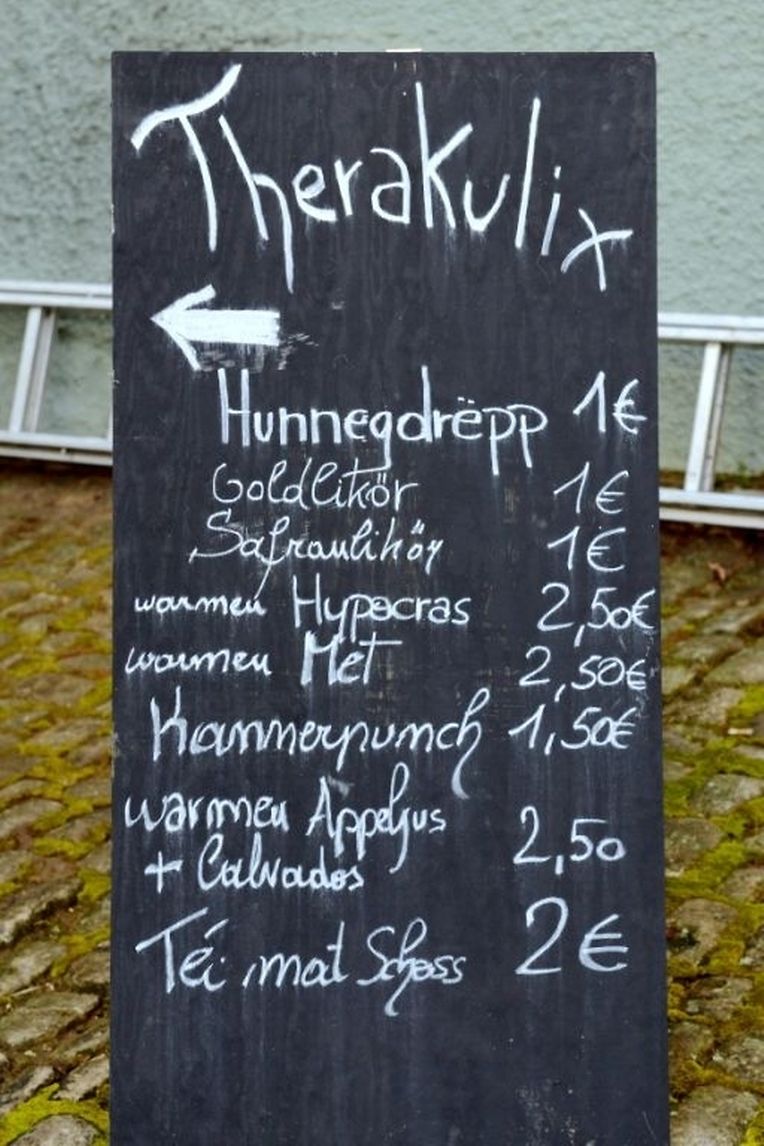 Therakulix
Hunnegdrëpp 1€
Goldlikör 1€
Safranlikör 1€
warmen Hypocras 2,50€
warmen Met 2,50€
Kannerpunch 1,50€
warmen Äppeljus
+ Calvados 2,50
Téi mat Schoss 2€